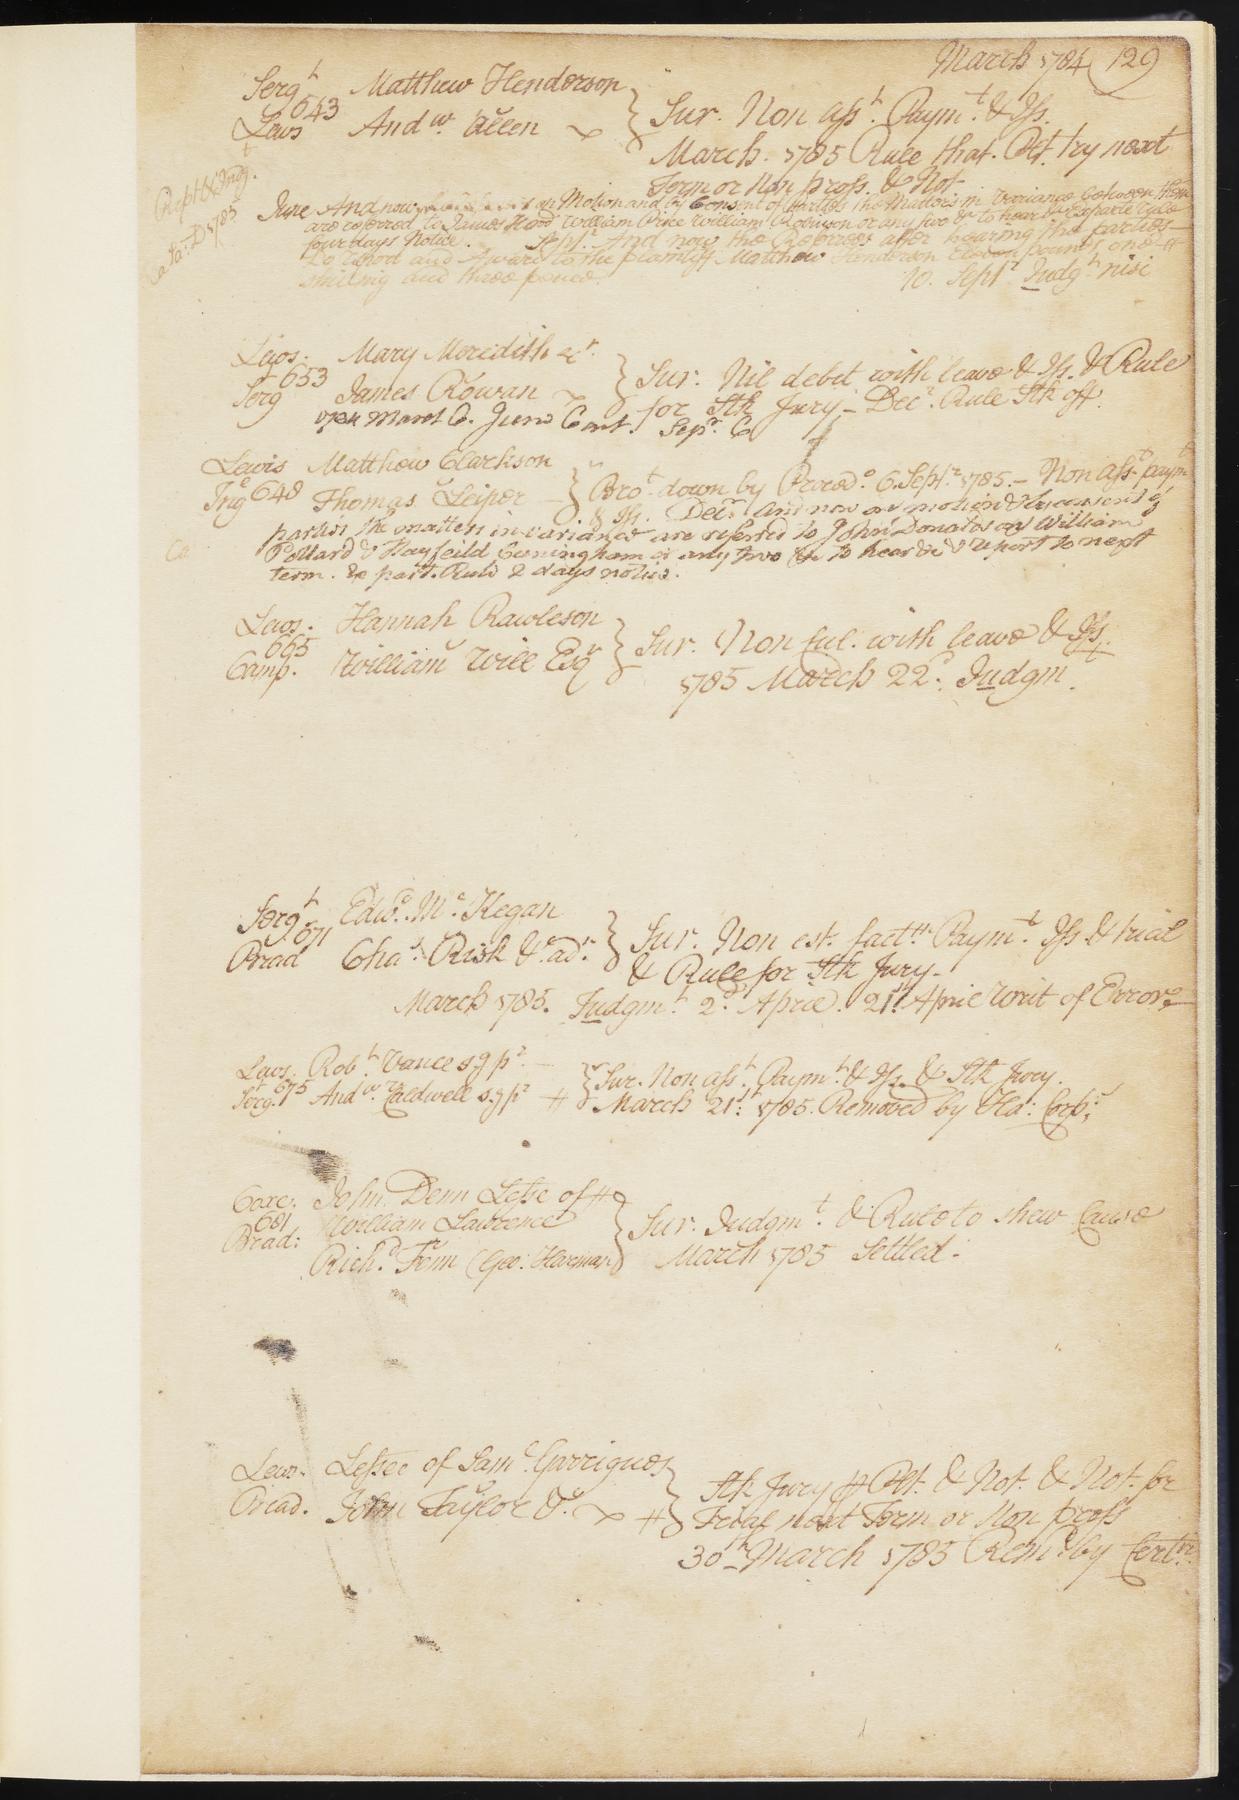 March 1784 (129
Sergt Matthew Henderson
643
Lews Andw. Allen
Sur. Non Asst. Paymt. & Iss.
March. 1785 Rule that. Plt. try next
Term or Non pross. & Not
Rept & Judg.
Ca. Sa. D 1785
June And now on Motion and by Consent of parties the Matters in Variance between them
are referred to James Hood William Price William Robinson or any two &c to hear &c Exparte Rule
four days Notice. Sept. And now the Referees after hearing the parties
Do Report and Award to the plaintiff Matthew Henderson Eleven pounds one
shilling and three pence.
10. Septr. Judgt. nisi
Lewos. Mary Meredith exr.
653
Serg James Rowan
Sur. Nil debet with leave & Iss. & Rule
for Stk Jury - Decr. Rule Stk off.
1784 March C. June Cont. Sepr. C
Lewis Matthew Clarkson
Inge 648 Thomas Leiper
Brot. down by Proced.o 6. Septr. 1785. - Non asst paymt
& Iss. Decr. And now on motion & by consent of
parties the matters in variance are referred to John Donaldson William
Pollard & Hayfeild Cunningham or any two &c to hear &c & report to next
term. Ex part. Rule 2 days notice.
Ca
Lewos. Hannah Rawleson
665
Camp. William Will Esqr
Sur. Non cul. with leave & Iss.
1785 March 22d. Judgm.
Sergt Edwd. Mc. Kegan
671
Brad Chas. Risk & ad.
Sur. Non est. factm Paymt. Iss & trial
& Rule for Stk Jury -
March 1785. Judgmt. 2d. April. 21st April Writ of Error.
Lewos. Robt. Vance sg pr.
Sergt. 675 Andw. Caldwell sg pr
Sur. Non asst. Paymt. & Iss. & Stk Jury.
March 21st. 1785. Removed by Ha. Corps.
Coxe. John Denn Lesse of
681 William Lawrence
Brad: Richd. Fenn (Geo: Harman)
Sur. Judgmt. & Rule to shew Cause
March 1785 Settled.
Lews. Lessee of Saml. Garrigues
Brad. John Taylor &.
Stk Jury Plt. & Not. & Not. for
Trial next Term or Non pross
30th March 1785 Remd. by Certri.